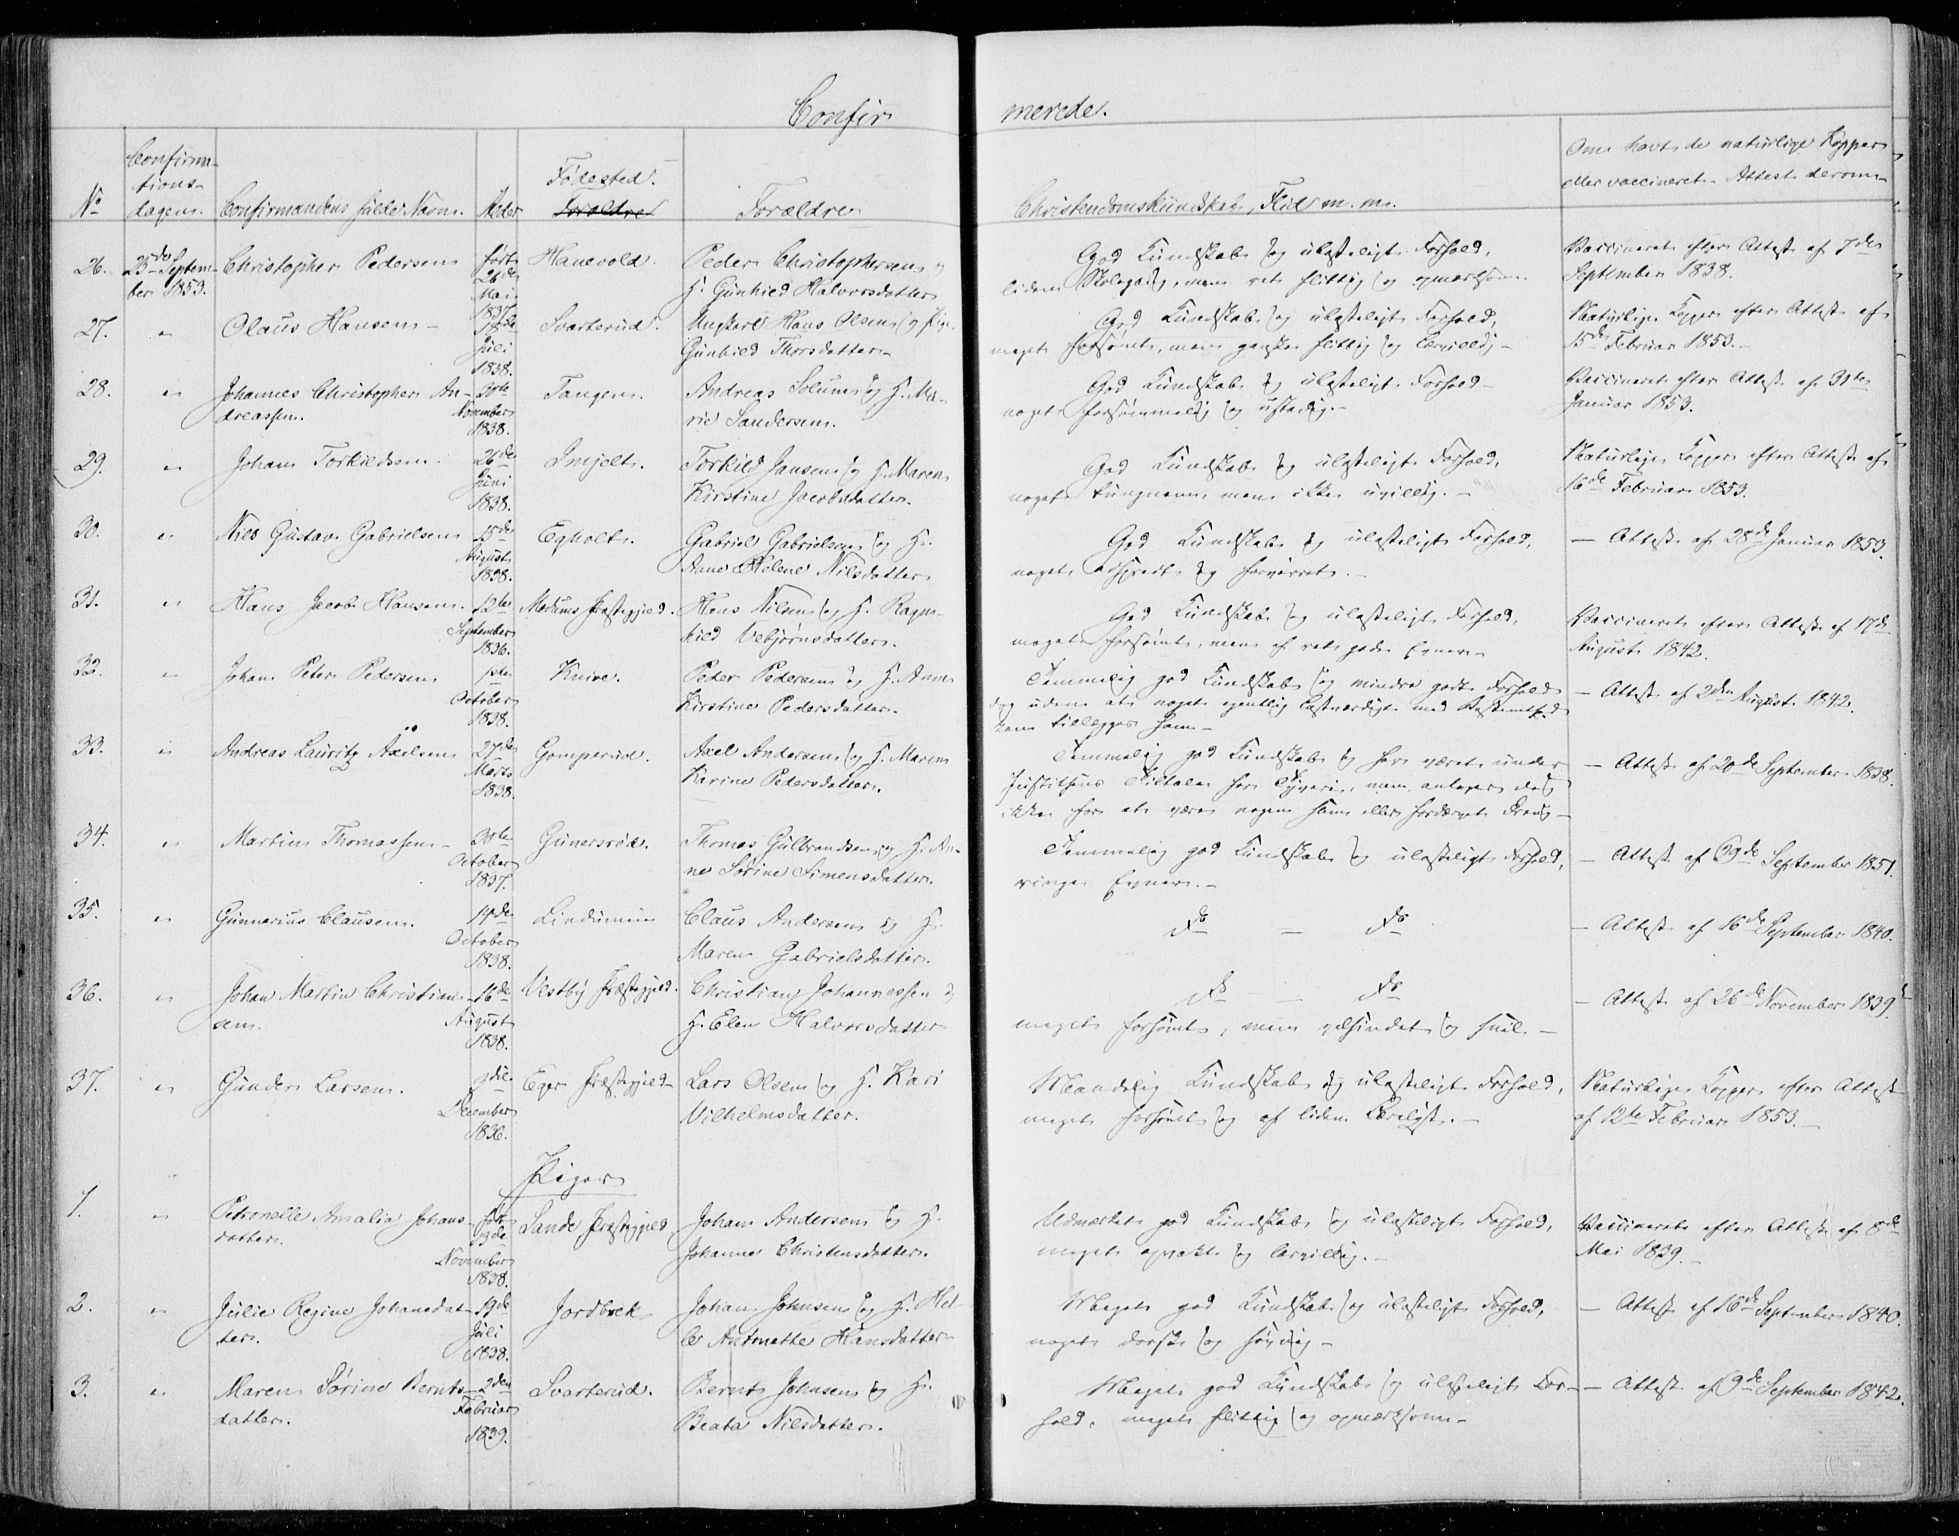 Confirmerede.
No
Confirmationsdagen.
Confirmandens fulde Navn.
Alder
Fødested.
Forældre
Christendomskundskab, Flid m. m.
Om havt de naturlige Kopper
eller vaccineret. Attest derom
26. 25de September 1853. Christopher Pedersen født 26de Mai 1837. Hanevold. Peder Christophersen og H. Gunhild Halvorsdatter
God Kundskab og ulasteligt Forhold,
liden Skolegang, men ret flittig og opmærksom.
Vaccineret efter Attest af 7de
September 1838.
27. " Olaus Hansen Juli 1838. Svarterud. Ungkarl Hans Olsen og Pige Gunhild Thorsdatter
God Kundskab og ulasteligt Forhold,
meget forsømt, men ganske flittig og lærvillig
Naturlige Kopper efter Attest af
15de Februar 1853.
28. " Johannes Christopher Andreassen. 30te November 1838. Tangen. Andreas Solum og H. Marie Sandersen.
God Kundskab og ulasteligt Forhold
noget forsømmelig og ustadig.
Vaccineret efter Attest af 31te
Januar 1853.
29. " Johan Torkildsen. 26de Juni 1838. Imjelt. Torkild Jansen og H. Maren Kirstine Jacobsdatter.
God Kundskab og ulasteligt Forhold,
noget tungnem men ikke uvillig.
Naturlige Kopper efter Attest af
16de Februar 1853.
30. " Nils Gustav Gabrielsen 15de August 1838. Egholt. Gabriel Gabrielsen og H. Anne Helene Nilsdatter
God Kundskab og ulasteligt Forhold,
noget adspredt og forvirret.
— Attest af 28de Januar 1853.
31. " Hans Jacob Hansen. 12te September 1836. Modums Præstegjeld. Hans Nilsen og H. Ragnhild Vebjørnsdatter.
God Kundskab og ulasteligt Forhold,
meget forsømt, men af ret gode Evner
Vaccineret efter Attest af 17de
August 1842.
32. " Johan Peter Pedersen 1ste October 1838. Knive. Peter Pedersen og H. Anne Kirstine Pedersdatter.
Temmelig god Kundskab og mindre godt Forhold
dog uden at noget egentlig lastværdigt med Bestemthed
kan tillægges ham
— Attest af 2den August 1842.
33. " Andreas Lauritz Axelsen 27de Marts 1838. Gomperud. Axel Andersen og H. Maren Karine Pedersdatter.
Temmelig god Kundskab og har været under
Justitsens Tiltale for Tyveri, men antages dog
ikke for at være nogen slem eller fordærvet Dreng
— Attest af 20de September 1838.
34. " Martin Thomassen 30te October 1837. Gunersrød. Thomas Gulbrandsen og H. Anne Sørine Simensdatter.
Temmelig god Kundskab og ulasteligt Forhold,
ringe Evner.
— Attest af 9de September 1851.
35. " Gunnarius Clausen. 14de October 1838. Lindumnie Claus Andersen og H. Maren Gabrielsdatter.
do — do
— Attest af 16de September 1840.
36. " Johan Martin Christiansen. 16de August 1838. Vestby Præstegjeld. Christian Johannessen og H. Elen Halvorsdatter
do — do
meget forsømt, men velsindet og snil.
— Attest af 26de November 1839.
37. " Gunder Larsen. December 1836. Eger Præstegjeld Lars Olsen og H. Kari Vilhelmsdatter.
Maadelig Kundskab og ulasteligt Forhold,
meget forsømt og af liden Lærelyst.
Naturlige Kopper efter Attest
af 12te Februar 1853.
Piger
1. " Petronelle Amalia Johansdatter. født 19de November 1838. Sande Præstegjeld Johan Andersen og H. Johanne Christensdatter.
Udmærket god Kundskab og ulasteligt Forhold,
meget opvakt og lærvillig.
Vaccineret efter Attest af 8de
Mai 1839.
2. " Julie Regine Johansdatter. 19de Juli 1838. Jordbrek Johan Johnsen og H. Helle Antonette Hansdatter
Meget god Kundskab og ulasteligt Forhold,
noget dorsk og søvnig
— Attest af 16de September 1840.
3. " Maren Sørine Berntsdatter. 2den Februar 1839. Svarterud. Bernt Johnsen og H. Beata Nilsdatter.
Meget god Kundskab og ulasteligt Forhold,
meget flittig og opmærksom
— Attest af 9de September 1842.